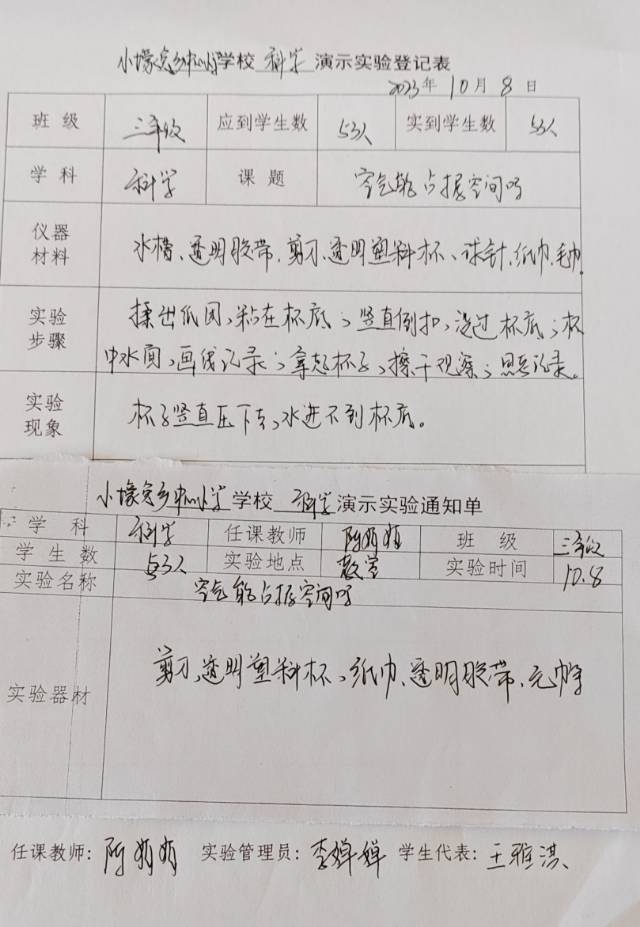 小壕兔乡中心小学校 科学 演示实验登记表
2023年 10月 8日
班级 三年级 应到学生数 53人 实到学生数 53人
学科 科学 课题 空气能占据空间吗
仪器材料 水槽、透明胶带、剪刀、透明塑料杯、球针、纸巾、毛巾
实验步骤 揉出纸团,粘在杯底;竖直倒扣,没过杯底;杯
中水面,画线记录;拿起杯子,擦干观察;思考记录。
实验现象 杯子竖直压下去,水进不到杯底。
小壕兔乡中心小学 学校 科学 演示实验通知单
学科 科学 任课教师 班级 三年级
学生数 53人 实验地点 教室 实验时间 10.8
实验名称 空气能占据空间吗
实验器材 剪刀、透明塑料杯、纸巾、透明胶带、毛巾等
任课教师: 实验管理员: 李婵婵 学生代表: 王雅淇